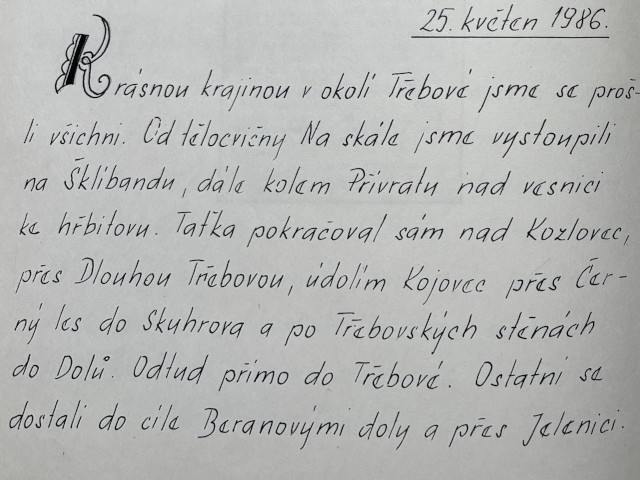 25. květen 1986.
Krásnou krajinou v okolí Třebové jsme se proš-
li všichni. Od tělocvičny Na skále jsme vystoupili
na Šklíbandu, dále kolem Přívratu nad vesnici
ke hřbitovu. Taťka pokračoval sám nad Kozlovec,
přes Dlouhou Třebovou, údolím Kojovec přes Čer-
ný les do Skuhrova a po Třebovských stěnách
do Dolů. Odtud přímo do Třebové. Ostatní se
dostali do cíle Beranovými doly a přes Jelenici.